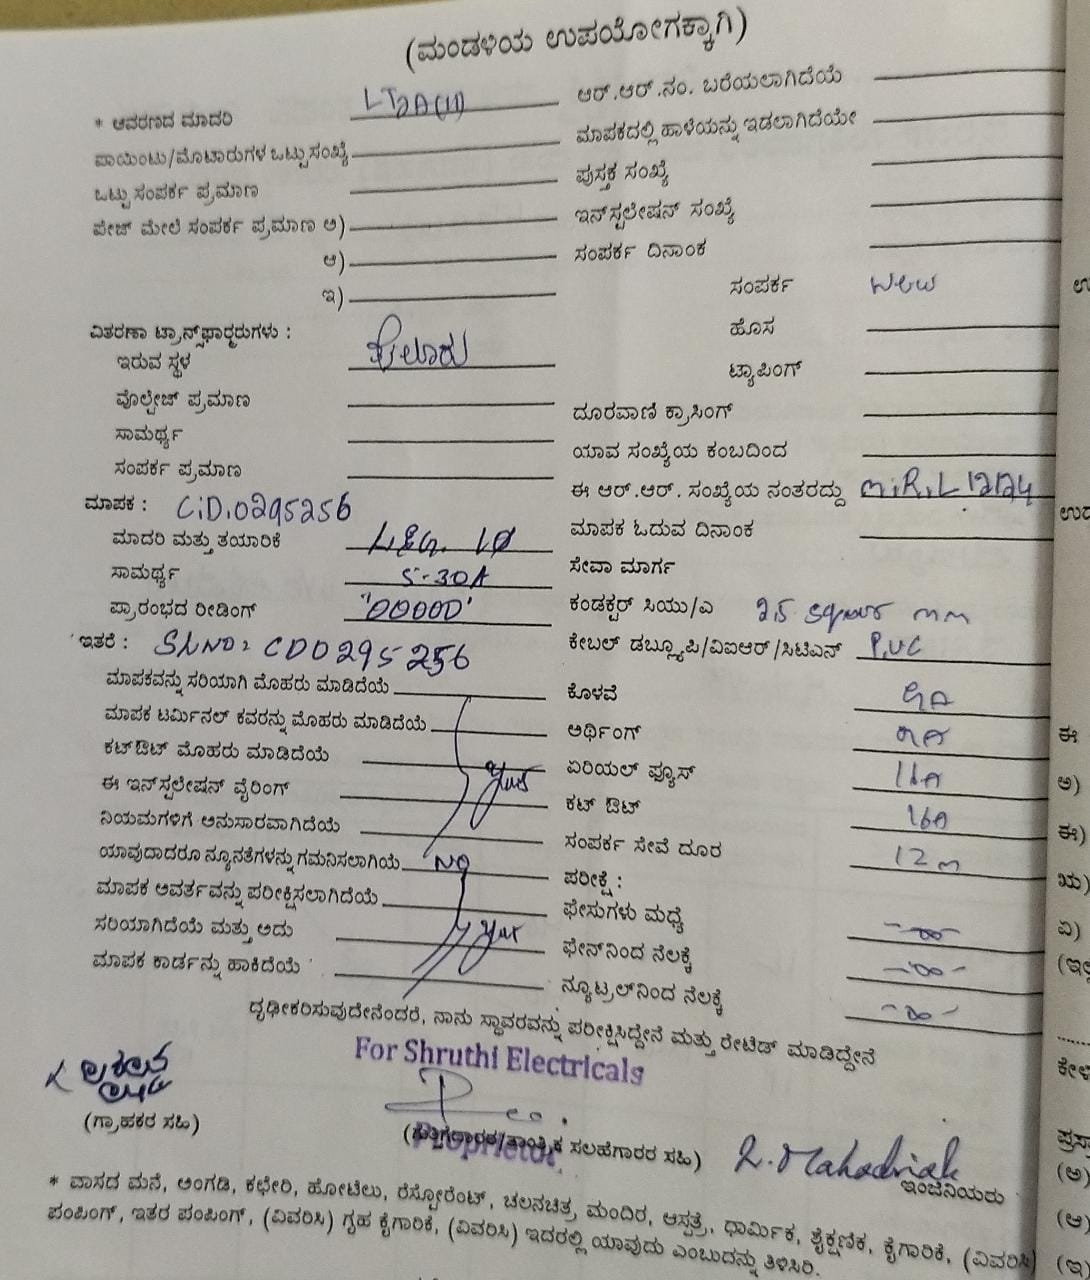 (ಮಂಡಳಿಯ ಉಪಯೋಗಕ್ಕಾಗಿ)
* ಆವರಣದ ಮಾದರಿ LT2A(ii)
ಪಾಯಿಂಟು/ಮೋಟಾರುಗಳ ಒಟ್ಟು ಸಂಖ್ಯೆ
ಒಟ್ಟು ಸಂಪರ್ಕ ಪ್ರಮಾಣ
ಪೇಜ್ ಮೇಲೆ ಸಂಪರ್ಕ ಪ್ರಮಾಣ ಅ)
ಆ)
ಇ)
ವಿತರಣಾ ಟ್ರಾನ್ಸ್‌ಫಾರ್ಮರುಗಳು :
ಇರುವ ಸ್ಥಳ
ವೊಲ್ಟೇಜ್ ಪ್ರಮಾಣ
ಸಾಮರ್ಥ್ಯ
ಸಂಪರ್ಕ ಪ್ರಮಾಣ
ಮಾಪಕ : C.D.0295256
ಮಾದರಿ ಮತ್ತು ತಯಾರಿಕೆ L&G. 1Ø
ಸಾಮರ್ಥ್ಯ 5-30A
ಪ್ರಾರಂಭದ ರೀಡಿಂಗ್ '00000'
ಇತರೆ : SLNO: CD0295256
ಮಾಪಕವನ್ನು ಸರಿಯಾಗಿ ಮೊಹರು ಮಾಡಿದೆಯೆ
ಮಾಪಕ ಟರ್ಮಿನಲ್ ಕವರನ್ನು ಮೊಹರು ಮಾಡಿದೆಯೆ
ಕಟ್‌ಔಟ್ ಮೊಹರು ಮಾಡಿದೆಯೆ
ಈ ಇನ್‌ಸ್ಟಲೇಷನ್ ವೈರಿಂಗ್ yes
ನಿಯಮಗಳಿಗೆ ಅನುಸಾರವಾಗಿದೆಯೆ
ಯಾವುದಾದರೂ ನ್ಯೂನತೆಗಳನ್ನು ಗಮನಿಸಲಾಗಿಯೆ NO
ಮಾಪಕ ಆವರ್ತವನ್ನು ಪರೀಕ್ಷಿಸಲಾಗಿದೆಯೆ
ಸರಿಯಾಗಿದೆಯೆ ಮತ್ತು ಅದು yes
ಮಾಪಕ ಕಾರ್ಡನ್ನು ಹಾಕಿದೆಯೆ
ಆರ್.ಆರ್.ನಂ. ಬರೆಯಲಾಗಿದೆಯೆ
ಮಾಪಕದಲ್ಲಿ ಹಾಳೆಯನ್ನು ಇಡಲಾಗಿದೆಯೇ
ಪುಸ್ತಕ ಸಂಖ್ಯೆ
ಇನ್‌ಸ್ಟಲೇಷನ್ ಸಂಖ್ಯೆ
ಸಂಪರ್ಕ ದಿನಾಂಕ
ಸಂಪರ್ಕ New
ಹೊಸ
ಟ್ಯಾಪಿಂಗ್
ದೂರವಾಣಿ ಕ್ರಾಸಿಂಗ್
ಯಾವ ಸಂಖ್ಯೆಯ ಕಂಬದಿಂದ
ಈ ಆರ್.ಆರ್. ಸಂಖ್ಯೆಯ ನಂತರದ್ದು
ಮಾಪಕ ಓದುವ ದಿನಾಂಕ
ಸೇವಾ ಮಾರ್ಗ
ಕಂಡಕ್ಟರ್ ಸಿಯು/ಎ 25 square mm
ಕೇಬಲ್ ಡಬ್ಲ್ಯೂಪಿ/ವಿಐಆರ್/ಸಿಟಿಎಸ್ PVC
ಕೊಳವೆ
ಅರ್ಥಿಂಗ್
ಏರಿಯಲ್ ಫ್ಯೂಸ್ 16A
ಕಟ್ ಔಟ್ 16A
ಸಂಪರ್ಕ ಸೇವೆ ದೂರ 12 m
ಪರೀಕ್ಷೆ :
ಫೇಸುಗಳು ಮಧ್ಯೆ -∞-
ಫೇಸ್‌ನಿಂದ ನೆಲಕ್ಕೆ -∞-
ನ್ಯೂಟ್ರಲ್‌ನಿಂದ ನೆಲಕ್ಕೆ -∞-
ದೃಢೀಕರಿಸುವುದೇನೆಂದರೆ, ನಾನು ಸ್ಥಾವರವನ್ನು ಪರೀಕ್ಷಿಸಿದ್ದೇನೆ ಮತ್ತು ರೇಟೆಡ್ ಮಾಡಿದ್ದೇನೆ
For Shruthi Electricals
(ಗ್ರಾಹಕರ ಸಹಿ)
ಸಲಹೆಗಾರರ ಸಹಿ)
Proprietor
ಇಂಜಿನಿಯರು
* ವಾಸದ ಮನೆ, ಅಂಗಡಿ, ಕಛೇರಿ, ಹೋಟೆಲು, ರೆಸ್ಟೋರೆಂಟ್, ಚಲನಚಿತ್ರ, ಮಂದಿರ, ಆಸ್ಪತ್ರೆ, ಧಾರ್ಮಿಕ, ಶೈಕ್ಷಣಿಕ, ಕೈಗಾರಿಕೆ, (ವಿವರಿಸಿ)
ಪಂಪಿಂಗ್, ಇತರ ಪಂಪಿಂಗ್, (ವಿವರಿಸಿ) ಗೃಹ ಕೈಗಾರಿಕೆ, (ವಿವರಿಸಿ) ಇದರಲ್ಲಿ ಯಾವುದು ಎಂಬುದನ್ನು ತಿಳಿಸಿರಿ.